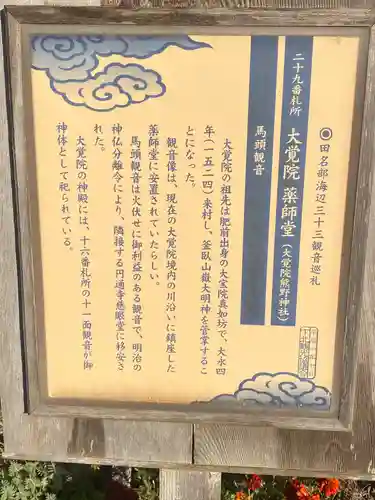 ◉田名部海辺三十三観音巡礼
二十九番札所 大覚院 薬師堂(大覚院熊野神社)
馬頭観音
大覚院の祖先は肥前出身の大宝院真如坊で、大永四
年(一五二四)来村し、釜臥山嶽大明神を管掌するこ
とになった。
観音像は、現在の大覚院境内の川沿いに鎮座した
薬師堂に安置されていたらしい。
馬頭観音は火伏せに御利益のある観音で、明治の
神仏分離令により、隣接する円通寺慈眼堂に移安さ
れた。
大覚院の神殿には、十六番札所の十一面観音が御
神体として祀られている。